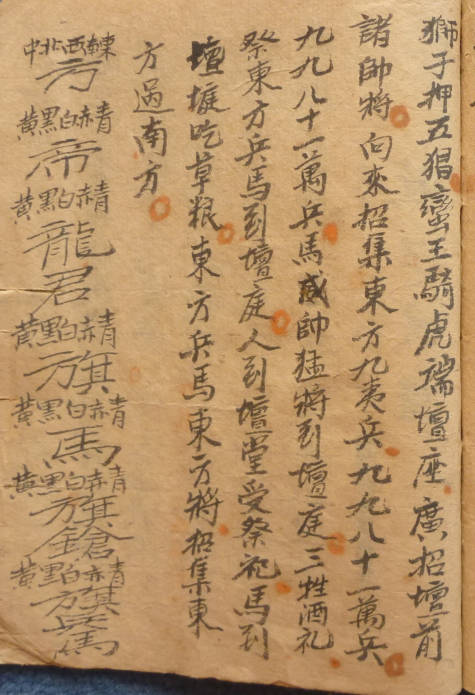 獅子押五猖蠻王騎虎端壇座廣招壇前
諸帥將向來招集東方九夷兵九九八十一萬兵
九九八十一萬兵馬威帥猛將到壇庭三牲酒礼
祭東方兵馬到壇庭人到壇堂受祭祀馬到
壇󠄀吃草粮東方兵馬東方將招集東
方過南方
中北西東
方
黃黑白赤青
帝
黃黑白赤青
龍君
黃黑白赤青
旗
黃黑白赤青
馬
黃黑白赤青
旗鎗
黃黑白赤青
旗兵馬